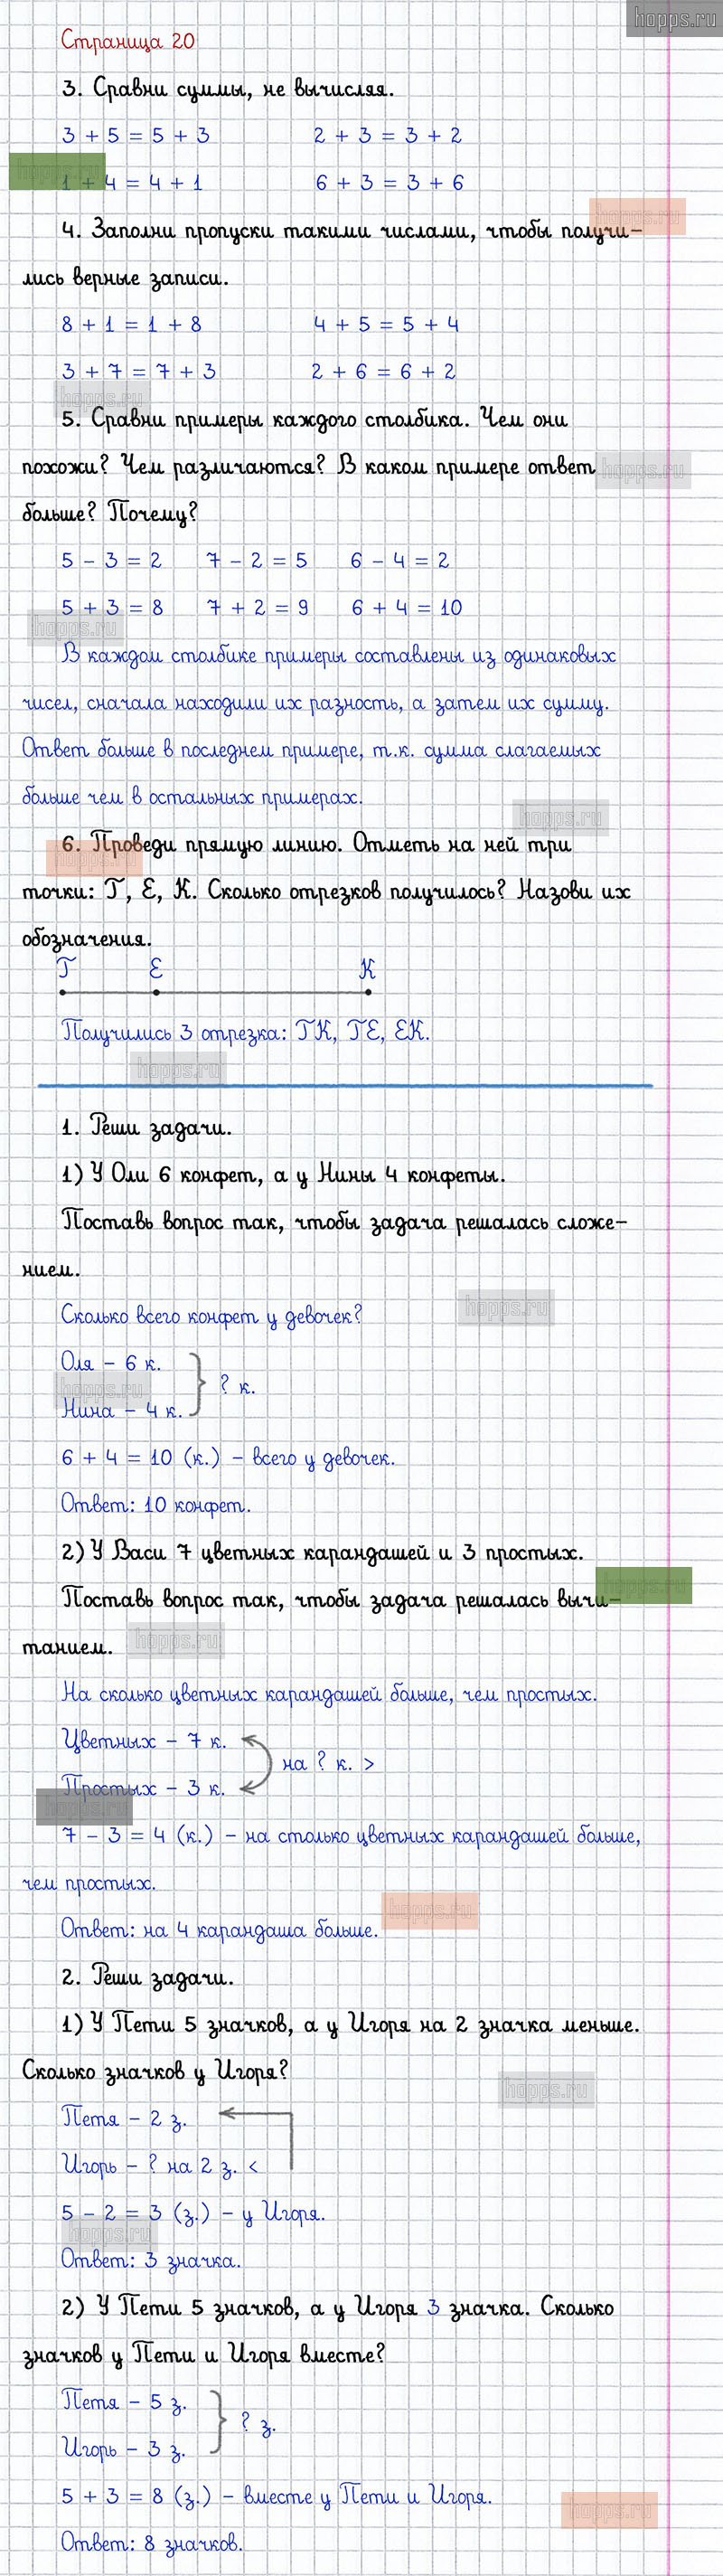 hopps.ru
Страница 20
3. Сравни суммы, не вычисляя.
3 + 5 = 5 + 3 2 + 3 = 3 + 2
1 + 4 = 4 + 1 6 + 3 = 3 + 6
hopps.ru
4. Заполни пропуски такими числами, чтобы получи-
лись верные записи.
8 + 1 = 1 + 8 4 + 5 = 5 + 4
3 + 7 = 7 + 3 2 + 6 = 6 + 2
hopps.ru
5. Сравни примеры каждого столбика. Чем они
похожи? Чем различаются? В каком примере ответ
hopps.ru
больше? Почему?
5 - 3 = 2 7 - 2 = 5 6 - 4 = 2
5 + 3 = 8 7 + 2 = 9 6 + 4 = 10
hopps.ru
В каждом столбике примеры составлены из одинаковых
чисел, сначала находили их разность, а затем их сумму.
Ответ больше в последнем примере, т.к. сумма слагаемых
больше чем в остальных примерах.
hopps.ru
6. Проведи прямую линию. Отметь на ней три
точки: Т, Е, К. Сколько отрезков получилось? Назови их
обозначения.
Т Е К
Получились 3 отрезка: ТК, ТЕ, ЕК.
hopps.ru
1. Реши задачи.
1) У Оли 6 конфет, а у Нины 4 конфеты.
Поставь вопрос так, чтобы задача решалась сложе-
нием.
hopps.ru
Сколько всего конфет у девочек?
Оля - 6 к.
? к.
hopps.ru
Нина - 4 к.
6 + 4 = 10 (к.) - всего у девочек.
Ответ: 10 конфет.
2) У Васи 7 цветных карандашей и 3 простых.
hopps.ru
Поставь вопрос так, чтобы задача решалась вычи-
hopps.ru
танием.
На сколько цветных карандашей больше, чем простых.
Цветных - 7 к.
на ? к. >
Простых - 3 к.
7 - 3 = 4 (к.) - на столько цветных карандашей больше,
чем простых.
hopps.ru
Ответ: на 4 карандаша больше.
2. Реши задачи.
1) У Пети 5 значков, а у Игоря на 2 значка меньше.
Сколько значков у Игоря?
hopps.ru
Петя - 2 з.
Игорь - ? на 2 з. <
5 - 2 = 3 (з.) - у Игоря.
hopps.ru
Ответ: 3 значка.
2) У Пети 5 значков, а у Игоря 3 значка. Сколько
значков у Пети и Игоря вместе?
Петя - 5 з.
? з.
Игорь - 3 з.
5 + 3 = 8 (з.) - вместе у Пети и Игоря.
hopps.ru
Ответ: 8 значков.